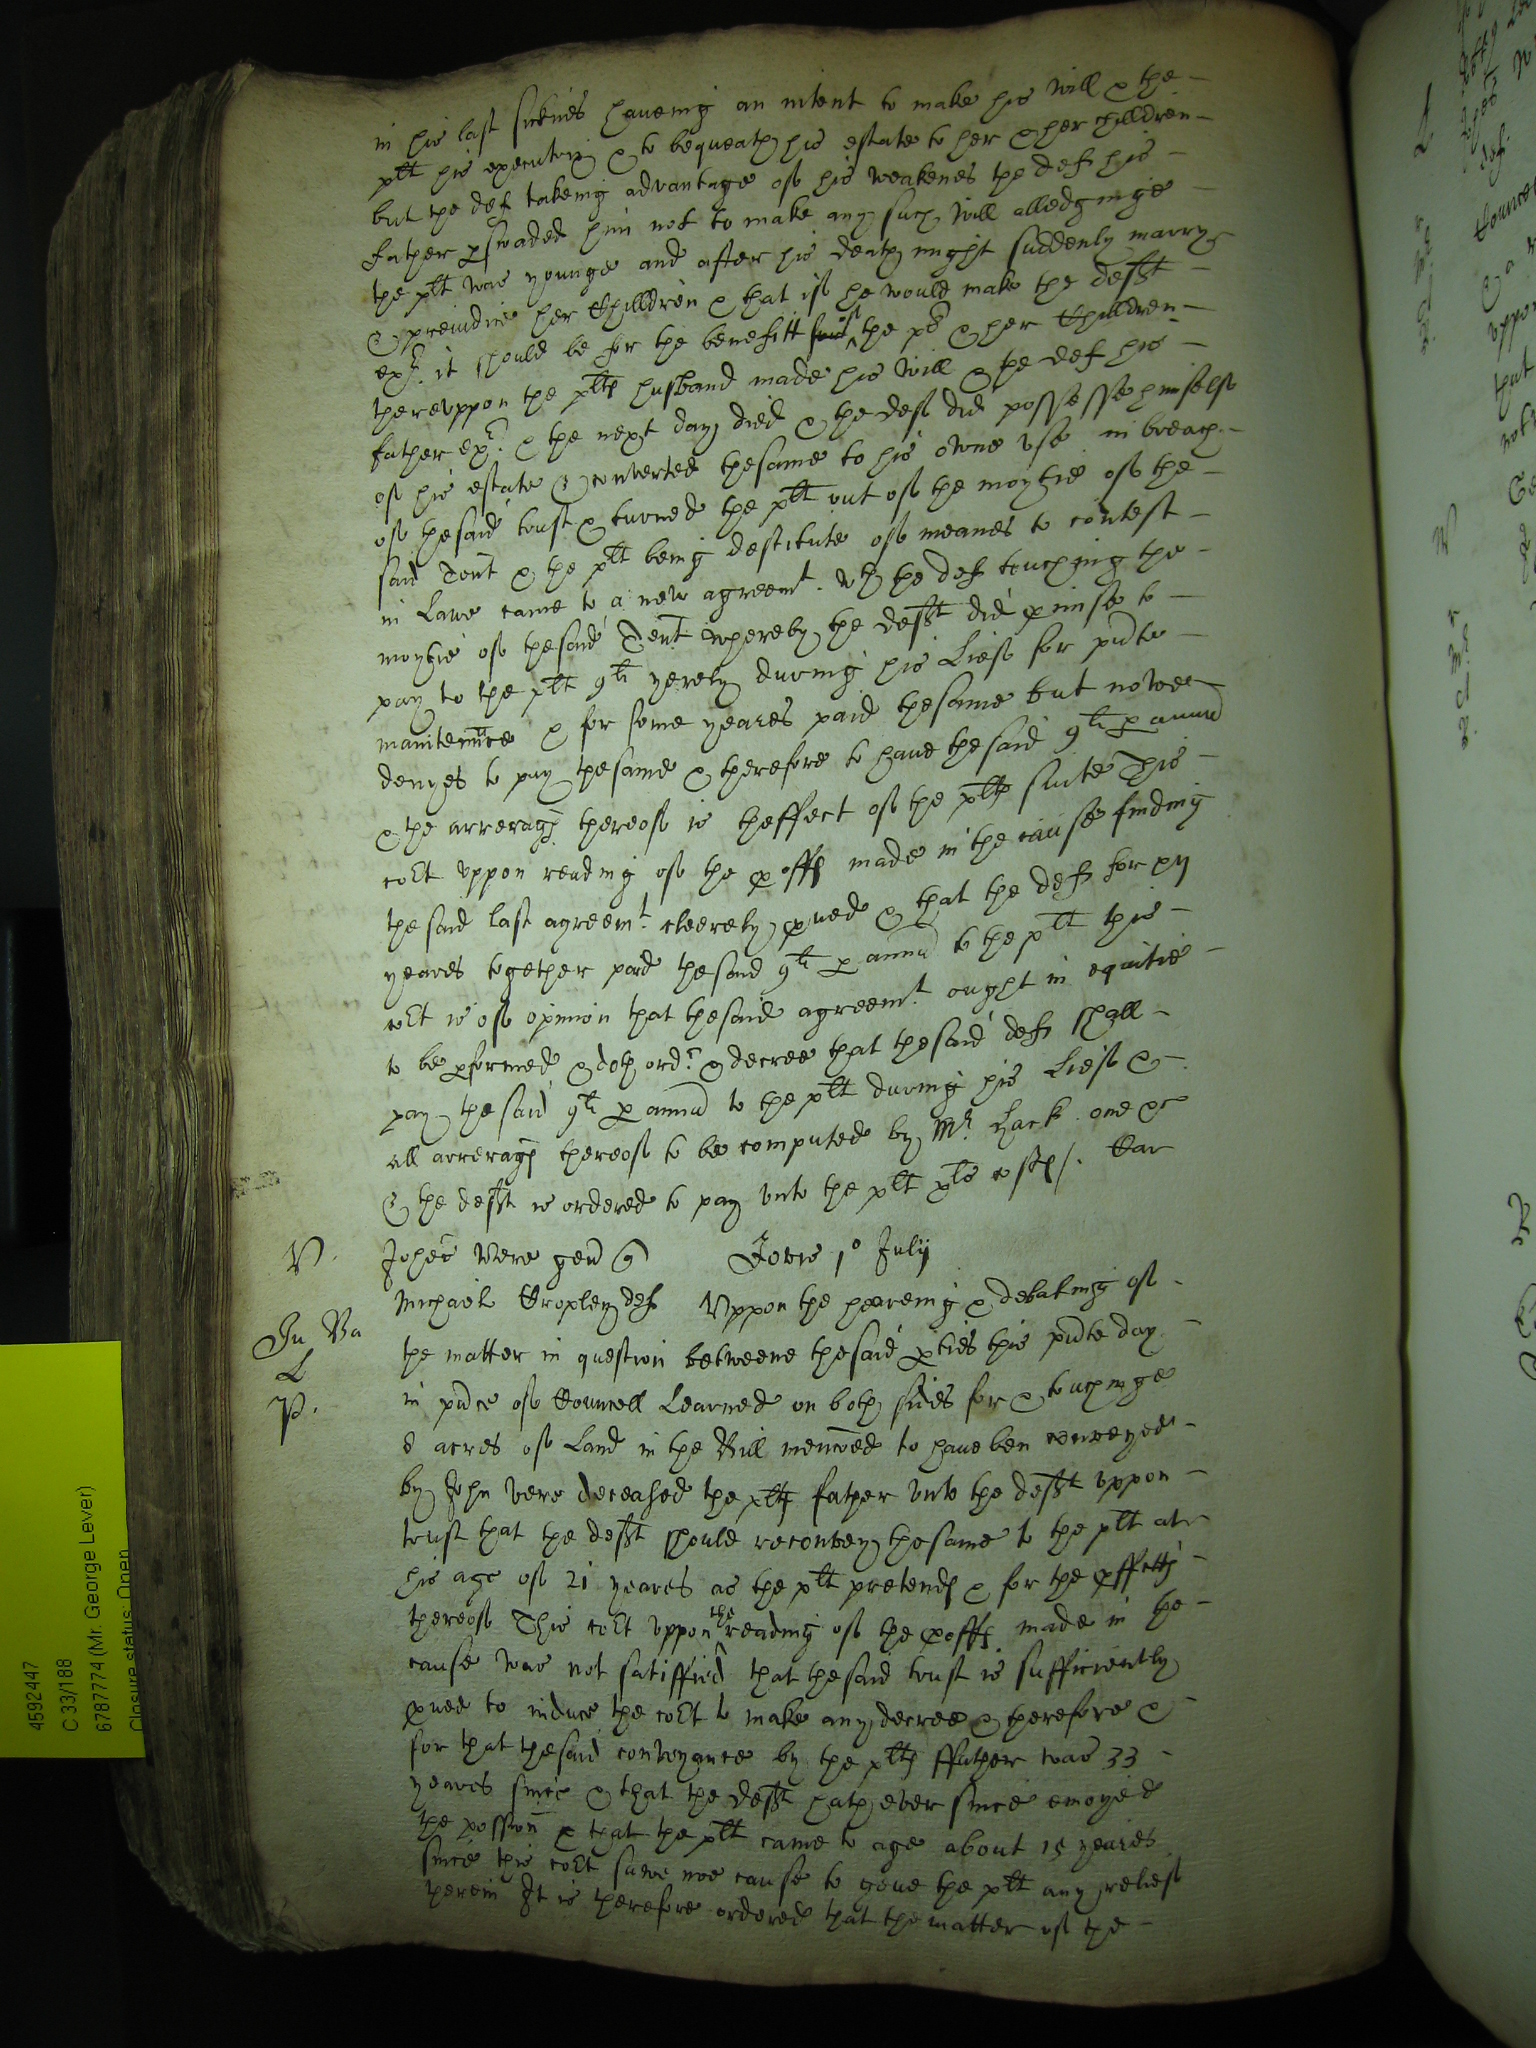 in his last sicknes haveing an intent to make his will & the
plt his executrix & to bequeath his estate to her & her Children
but the def takeing advantage of his weakenes the def his
father pswaded him not to make any such will alledginge
the plt was younge and after his death might suddenly marry
& preiudice her Children & that if he would make the deft
exr it should be for the benefitt the plt & her Children
therevppon the plts husband made his will & the def his
father exr & the next day died & the def did possesse himself
of his estate & converted thesame to his owne vse in breach
of thesaid trust & turned the plt out of the moytie of the
said Tent & the plt being destitute of meanes to contest
in Lawe came to a new agreemt wth the def touching the
moytie of thesaid Tent whereby the deft did pmise to
pay to the plt 9li yerely during his Lief for psnte
maintennce & for some yeares paid thesame but nowe
denyes to pay thesame & therefore to have thesaid 9li p annu
& the arrerags thereof is theffect of the plts suite This
cort vppon reading of the proffs made in the cause finding
the said last agreemt cleerely pued & that the def for xij
yeares together paid thesaid 9li p annu to the plt this
cort is of opinion that thesaid agreemt ought in equitie
to be pformed & doth ordr & decree that thesaid def shall
pay thesaid 9li p annu to the plt during his Lief &
all arrerags thereof to be computed by Mr Hack one &c
& the deft is ordered to pay vnto the plt costs
V. Johes Vere gen q Jovis 1o July
Michaell Cropley def Vppon the heareing & debating of
the matter in question betweene thesaid pties this psnte day
in psnce of Councell Learned on both sides for & touchinge
acres of Land in the Bill mencoed to have ben conveyed
by John Vere deceased the plts father vnto the deft vppon
trust that the deft should reconvey thesame to the plt att
his age of 21 yeares as the plt pretends & for the pffitts
thereof This cort vppon the reading of the proffs made in the
cause was not satisfied that thesaid trust is sufficiently
pued to induce the cort to make any decree & therefore &
for that thesaid conveyance by the plts ffather was 33
yeares since & that the deft hath ever since enioyed
the possion & that the plt came to age about 15 yeares
since this cort sawe noe cause to geve the plt any relief
therein It is therefore ordered that the matter of the
4592447
C 33/188
6787774 (Mr. George Lever)
Closure status: Open